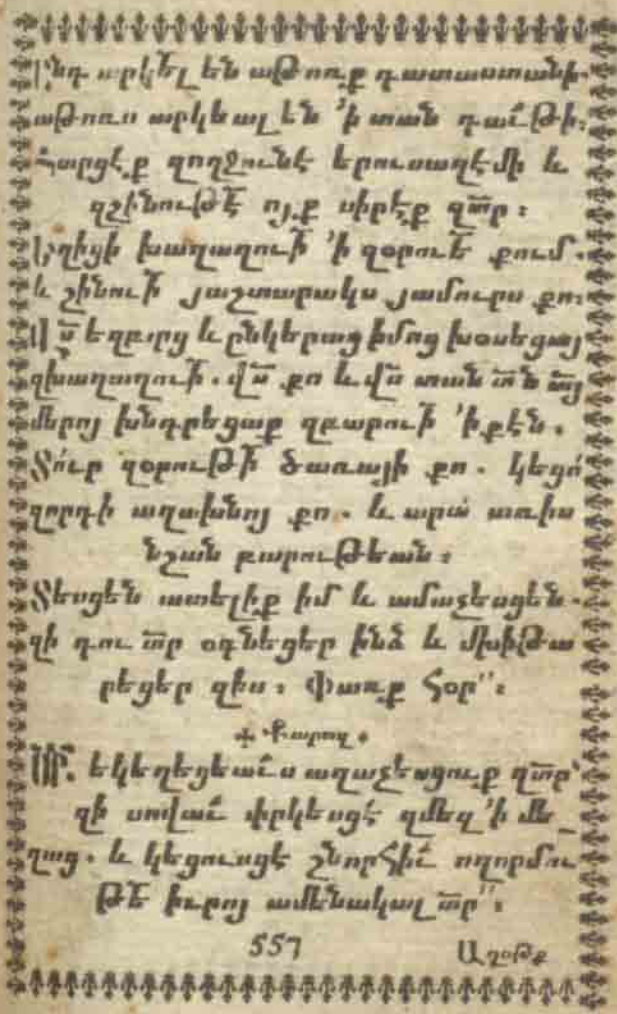 Անդ արկել են աթոռք դատաստանի.
աթոռս արկեալ են 'ի տան դաւ՟թի։
Հարցէք զողջունէ երուսաղէմի և
զշինութե՟ ոյք սիրէք զտ՟ր։
Եղիցի խաղաղուի՟ 'ի զօրուե՟ քում.
և շինուի՟ յաշտարակս յամուրս քո։
Վս՟ եղբարց և ընկերաց իմոց խօսեցայ
զխաղաղուի՟. վս՟ քո և վս՟ տան տն՟ ա՟յ
մերոյ խնդրեցաք զբարուի՟ 'ի քէն.
Տո՛ւր զօրութի՟ ծառայի քո. կեցո՛
զորդի աղախնոյ քո. և արա՛ առ իս
նշան բարութեան։
Տեսցեն ատելիք իմ և ամաչեսցեն.
զի դու տ՟ր օգնեցեր ինձ և մխիթա
րեցեր զիս։ Փառք հօր՛՛։
+ Քարոզ.
Ս՟Բ. եկեղեցեաւ՟ս աղաչեսցուք զտ՟ր՝
զի սովաւ՟ փրկեսցէ զմեզ 'ի մե
ղաց. և կեցուսցէ շնորհիւ՟ ողորմու
թե՟ իւրոյ ամենակալ տ՟ր՛՛։
557 Աղօթք